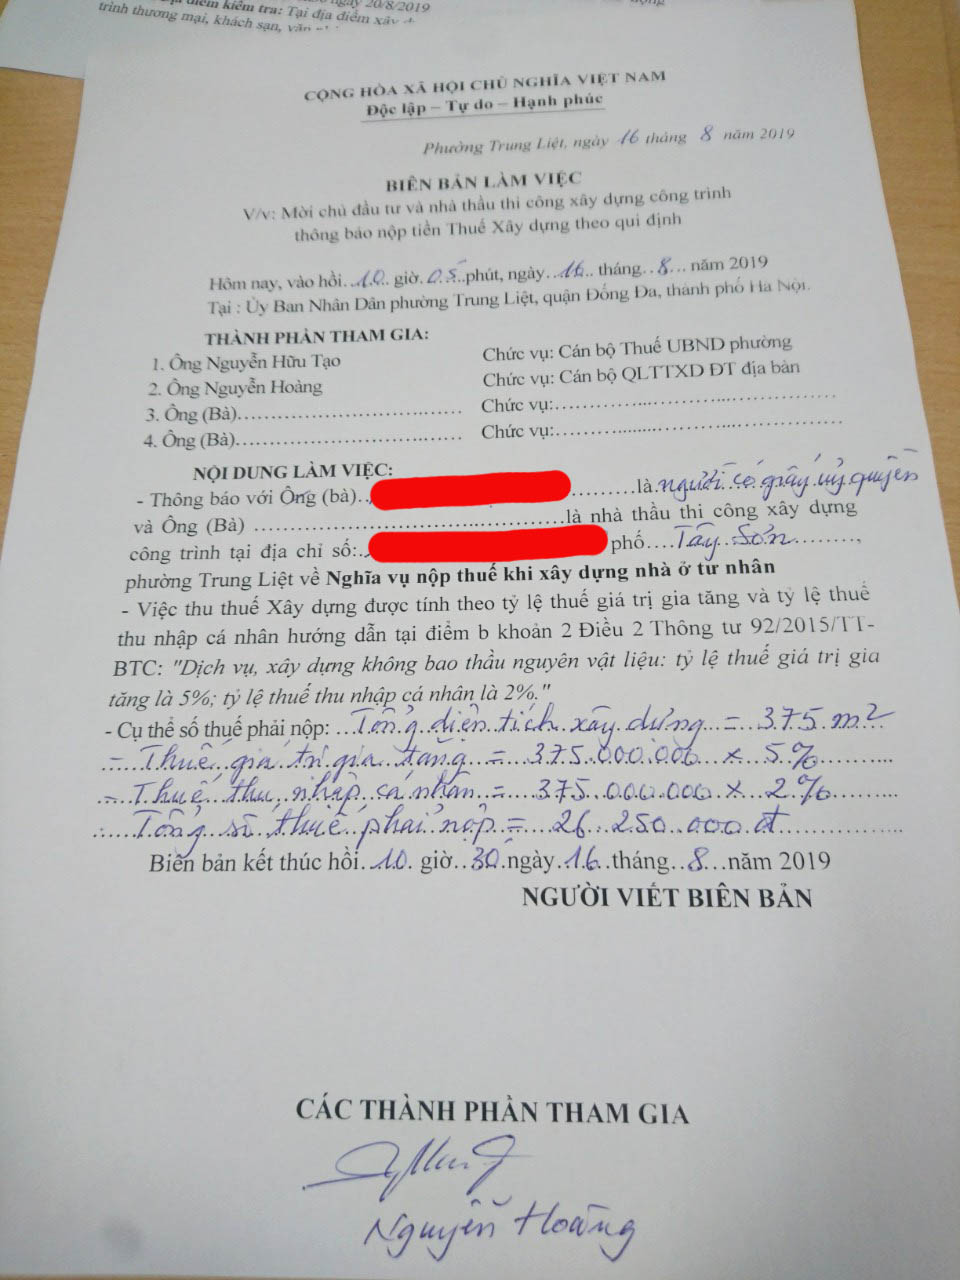 ngày 20/8/2019
điểm kiểm tra: Tại địa điểm xây
trình thương mại, khách sạn, văn
CỘNG HÒA XÃ HỘI CHỦ NGHĨA VIỆT NAM
Độc lập – Tự do – Hạnh phúc
Phường Trung Liệt, ngày 16 tháng 8 năm 2019
BIÊN BẢN LÀM VIỆC
V/v: Mời chủ đầu tư và nhà thầu thi công xây dựng công trình
thông báo nộp tiền Thuế Xây dựng theo qui định
Hôm nay, vào hồi..10.. giờ.05..phút, ngày..16... tháng..8... năm 2019
Tại : Ủy Ban Nhân Dân phường Trung Liệt, quận Đống Đa, thành phố Hà Nội.
THÀNH PHẦN THAM GIA:
1. Ông Nguyễn Hữu Tạo Chức vụ: Cán bộ Thuế UBND phường
2. Ông Nguyễn Hoàng Chức vụ: Cán bộ QLTTXD ĐT địa bàn
3. Ông (Bà)........................................ Chức vụ:................................................
4. Ông (Bà)........................................ Chức vụ:................................................
NỘI DUNG LÀM VIỆC:
- Thông báo với Ông (bà).. ..........là.người có giấy uỷ quyền
và Ông (Bà) ..................................................là nhà thầu thi công xây dựng
công trình tại địa chỉ số:.. phố....Tây Sơn..........,
phường Trung Liệt về Nghĩa vụ nộp thuế khi xây dựng nhà ở tư nhân
- Việc thu thuế Xây dựng được tính theo tỷ lệ thuế giá trị gia tăng và tỷ lệ thuế
thu nhập cá nhân hướng dẫn tại điểm b khoản 2 Điều 2 Thông tư 92/2015/TT-
BTC: "Dịch vụ, xây dựng không bao thầu nguyên vật liệu: tỷ lệ thuế giá trị gia
tăng là 5%; tỷ lệ thuế thu nhập cá nhân là 2%."
- Cụ thể số thuế phải nộp: ...Tổng diện tích xây dựng = 375 m2
- Thuế giá trị gia tăng = 375.000.000 x 5%
- Thuế thu nhập cá nhân = 375.000.000 x 2%
Tổng số thuế phải nộp = 26.250.000 đ
Biên bản kết thúc hồi..10. giờ..30.ngày.16..tháng...8...năm 2019
NGƯỜI VIẾT BIÊN BẢN
CÁC THÀNH PHẦN THAM GIA
Nguyễn Hoàng